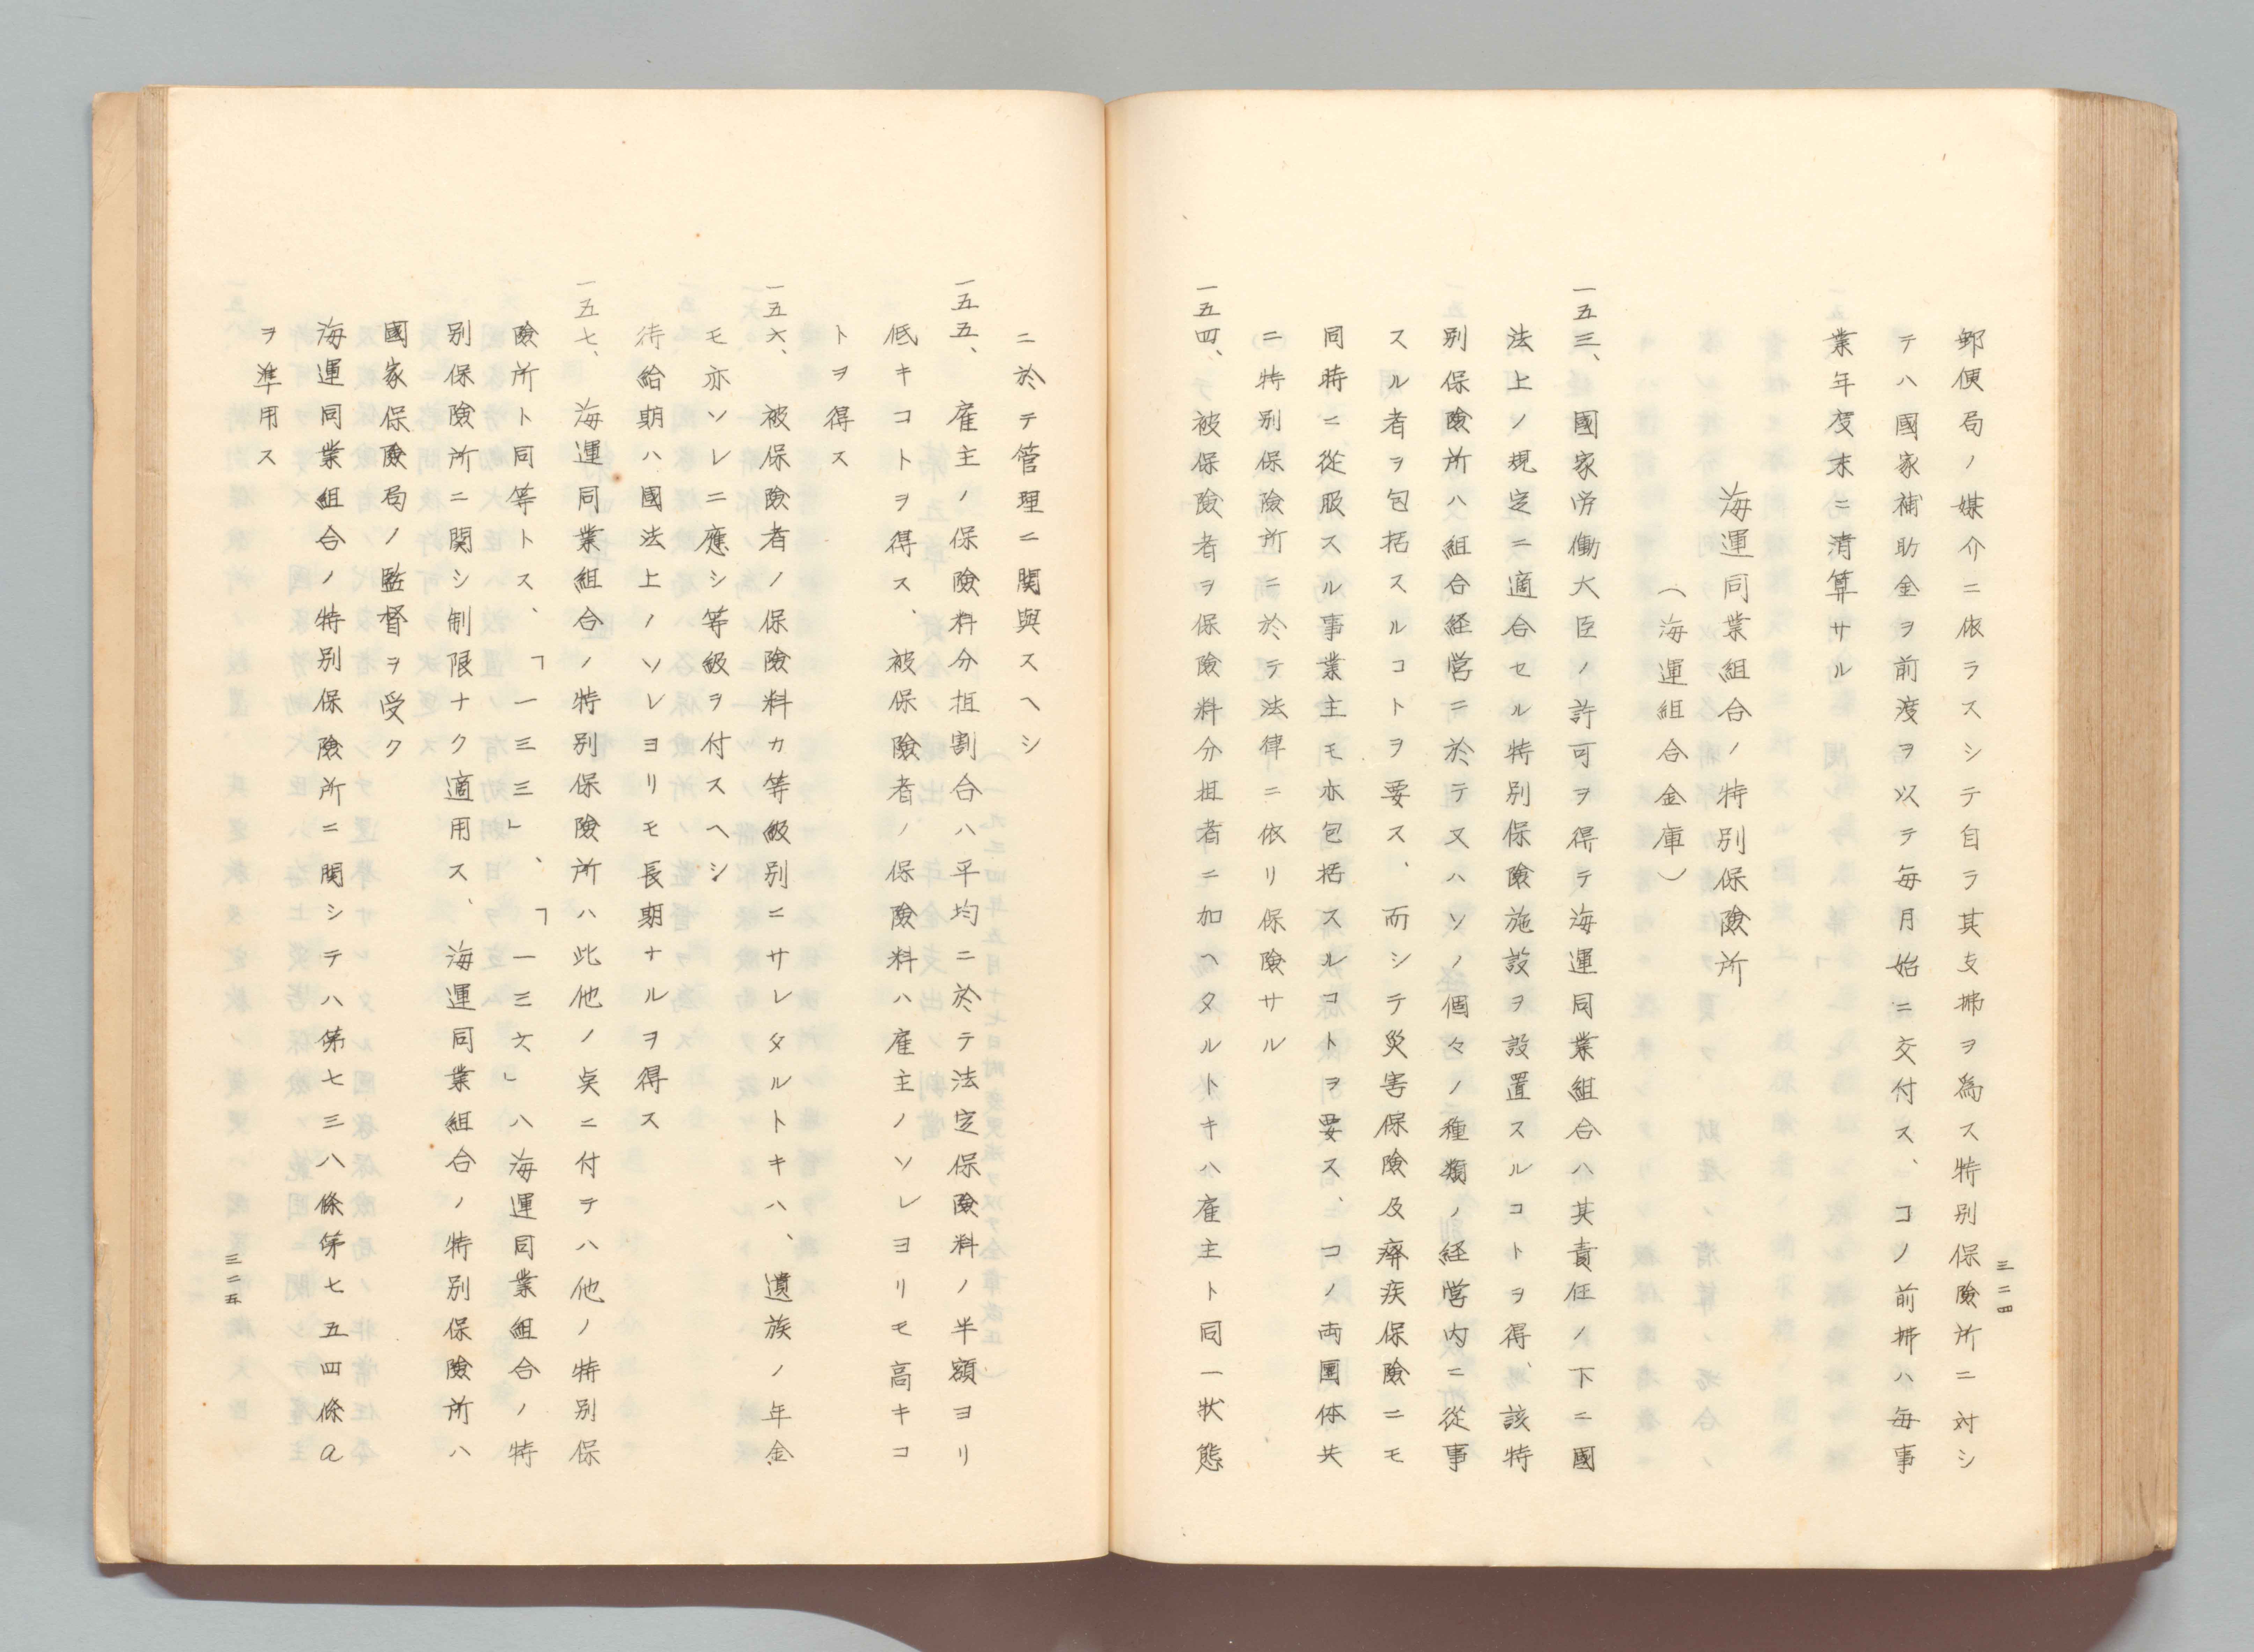 郵便局ノ媒介ニ依ラスシテ自ラ其支拂ヲ爲ス特別保險所ニ対シ
テハ國家補助金ヲ前渡ヲ以テ毎月始ニ交付ス、コノ前拂ハ毎事
業年度末ニ清算サル
海運同業組合ノ特別保險所
（海運組合金庫）
一五三、國家労働大臣ノ許可ヲ得テ海運同業組合ハ其責任ノ下ニ國
法上ノ規定ニ適合セル特別保險施設ヲ設置スルコトヲ得、該特
別保險所ハ組合経営ニ於テ又ハソノ個々ノ種類ノ経営内ニ従事
スル者ヲ包括スルコトヲ要ス、而シテ災害保險及癈疾保險ニモ
同時ニ從服スル事業主モ亦包括スルコトヲ要ス、コノ両團体共
ニ特別保險所ニ於テ法律ニ依リ保險サル
一五四、被保險者ヲ保險料分担者ニ加ヘタルトキハ雇主ト同一狀態
三二四
ニ於テ管理ニ関與スヘシ
一五五、雇主ノ保險料分担割合ハ平均ニ於テ法定保險料ノ半額ヨリ
低キコトヲ得ス、被保險者ノ保險料ハ雇主ノソレヨリモ高キコ
トヲ得ス
一五六、被保險者ノ保險料カ等級別ニサレタルトキハ、遺族ノ年金
モ亦ソレニ應シ等級ヲ付スヘシ
待給期ハ國法上ノソレヨリモ長期ナルヲ得ス
一五七、海運同業組合ノ特別保險所ハ此他ノ点ニ付テハ他ノ特別保
險所ト同等トス、「一三三」、「一三六」ハ海運同業組合ノ特
別保險所ニ関シ制限ナク適用ス、海運同業組合ノ特別保險所ハ
國家保險局ノ監督ヲ受ク
海運同業組合ノ特別保險所ニ関シテハ第七三八條第七五四條a
ヲ準用ス
三二五